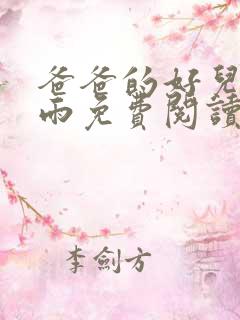 爸爸的好兒
雨免費閱讀
李劍方